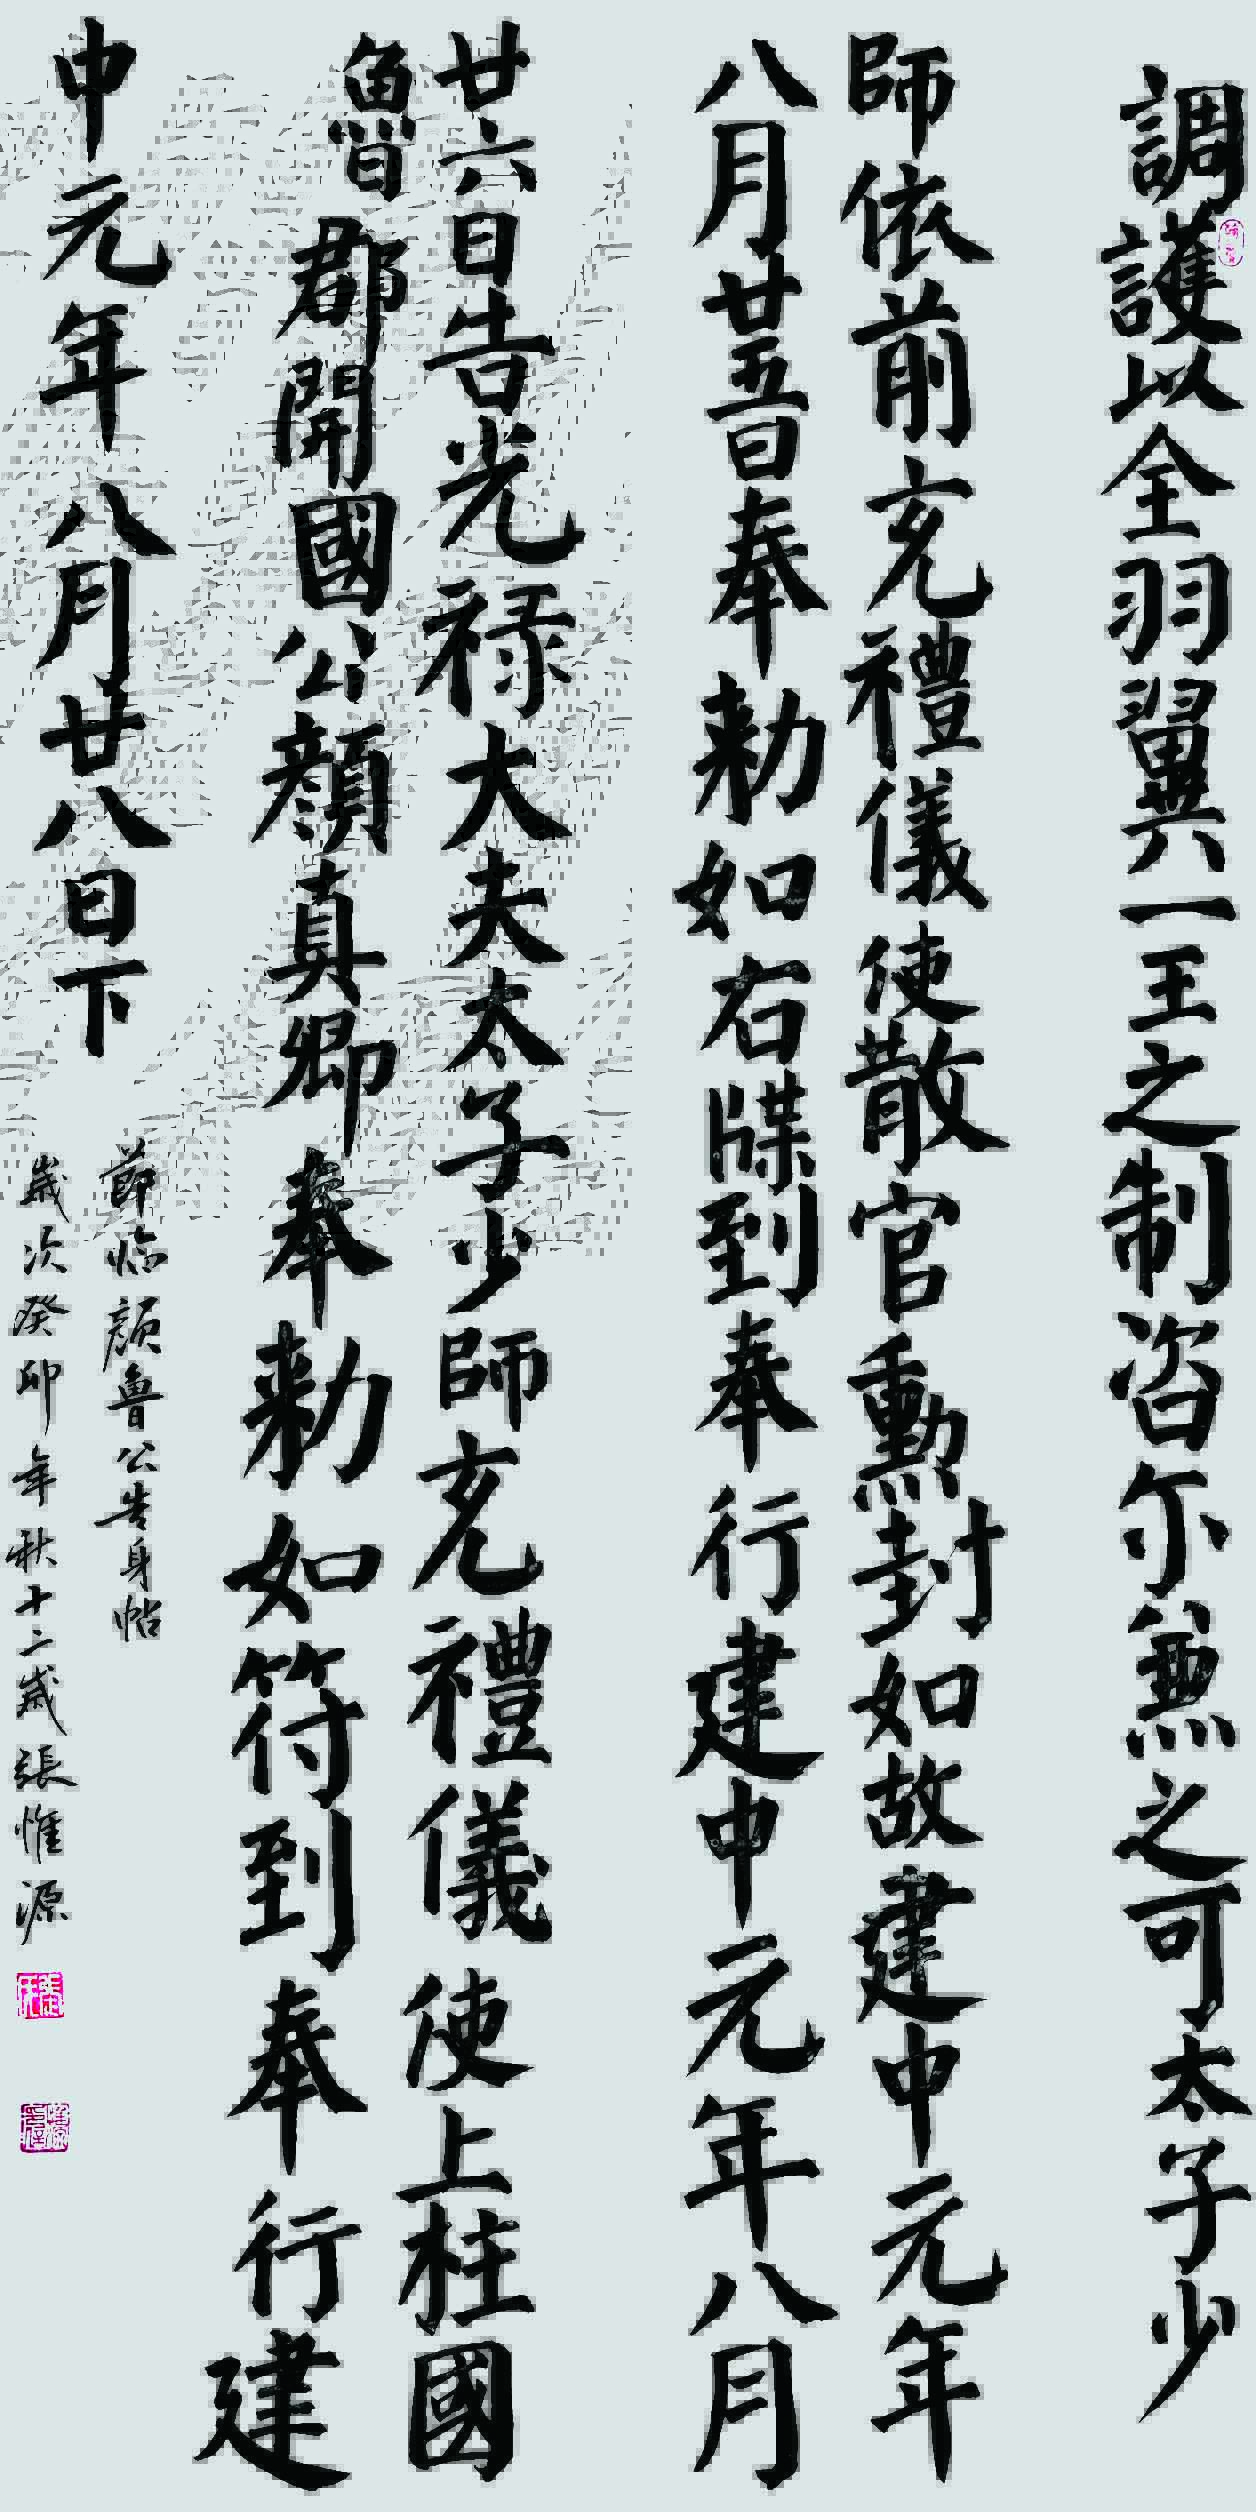 調護以全羽翼一王之制咨尔兼之可太子少
師依前充禮儀使散官勳封如故建申元年
八月廿五日奉勅如右牒到奉行建申元年八月
廿六日告光禄大夫太子少師充禮儀使上柱國
魯郡開國公顏真卿奉勅如符到奉行建
申元年八月廿八日下
節臨顏魯公告身帖
歲次癸卯年秋十二歲張惟源